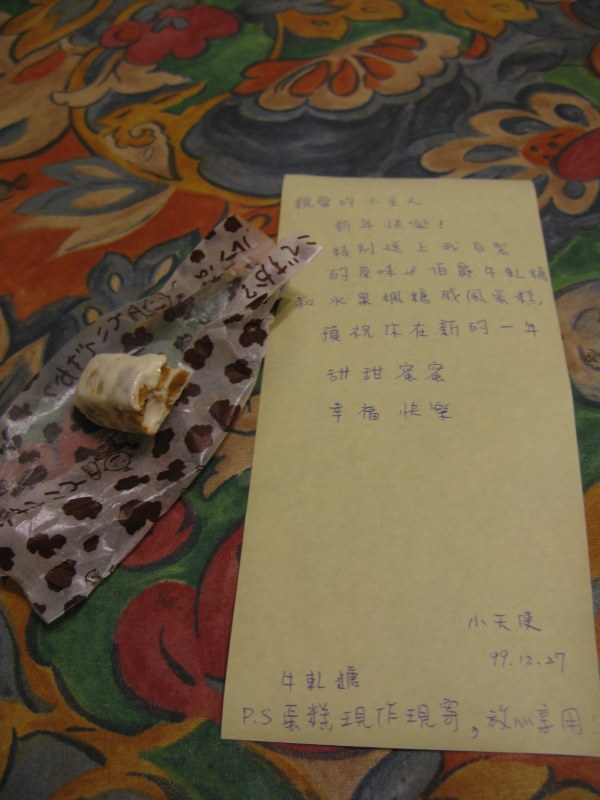 親愛的小主人
新年快樂!
特別送上我自製
的原味&伯爵牛軋糖
和水果楓糖戚風蛋糕,
預祝你在新的一年
甜甜蜜蜜
幸福快樂
小天使
99.12.27
牛軋糖
P.S 蛋糕現作現寄,放心享用!